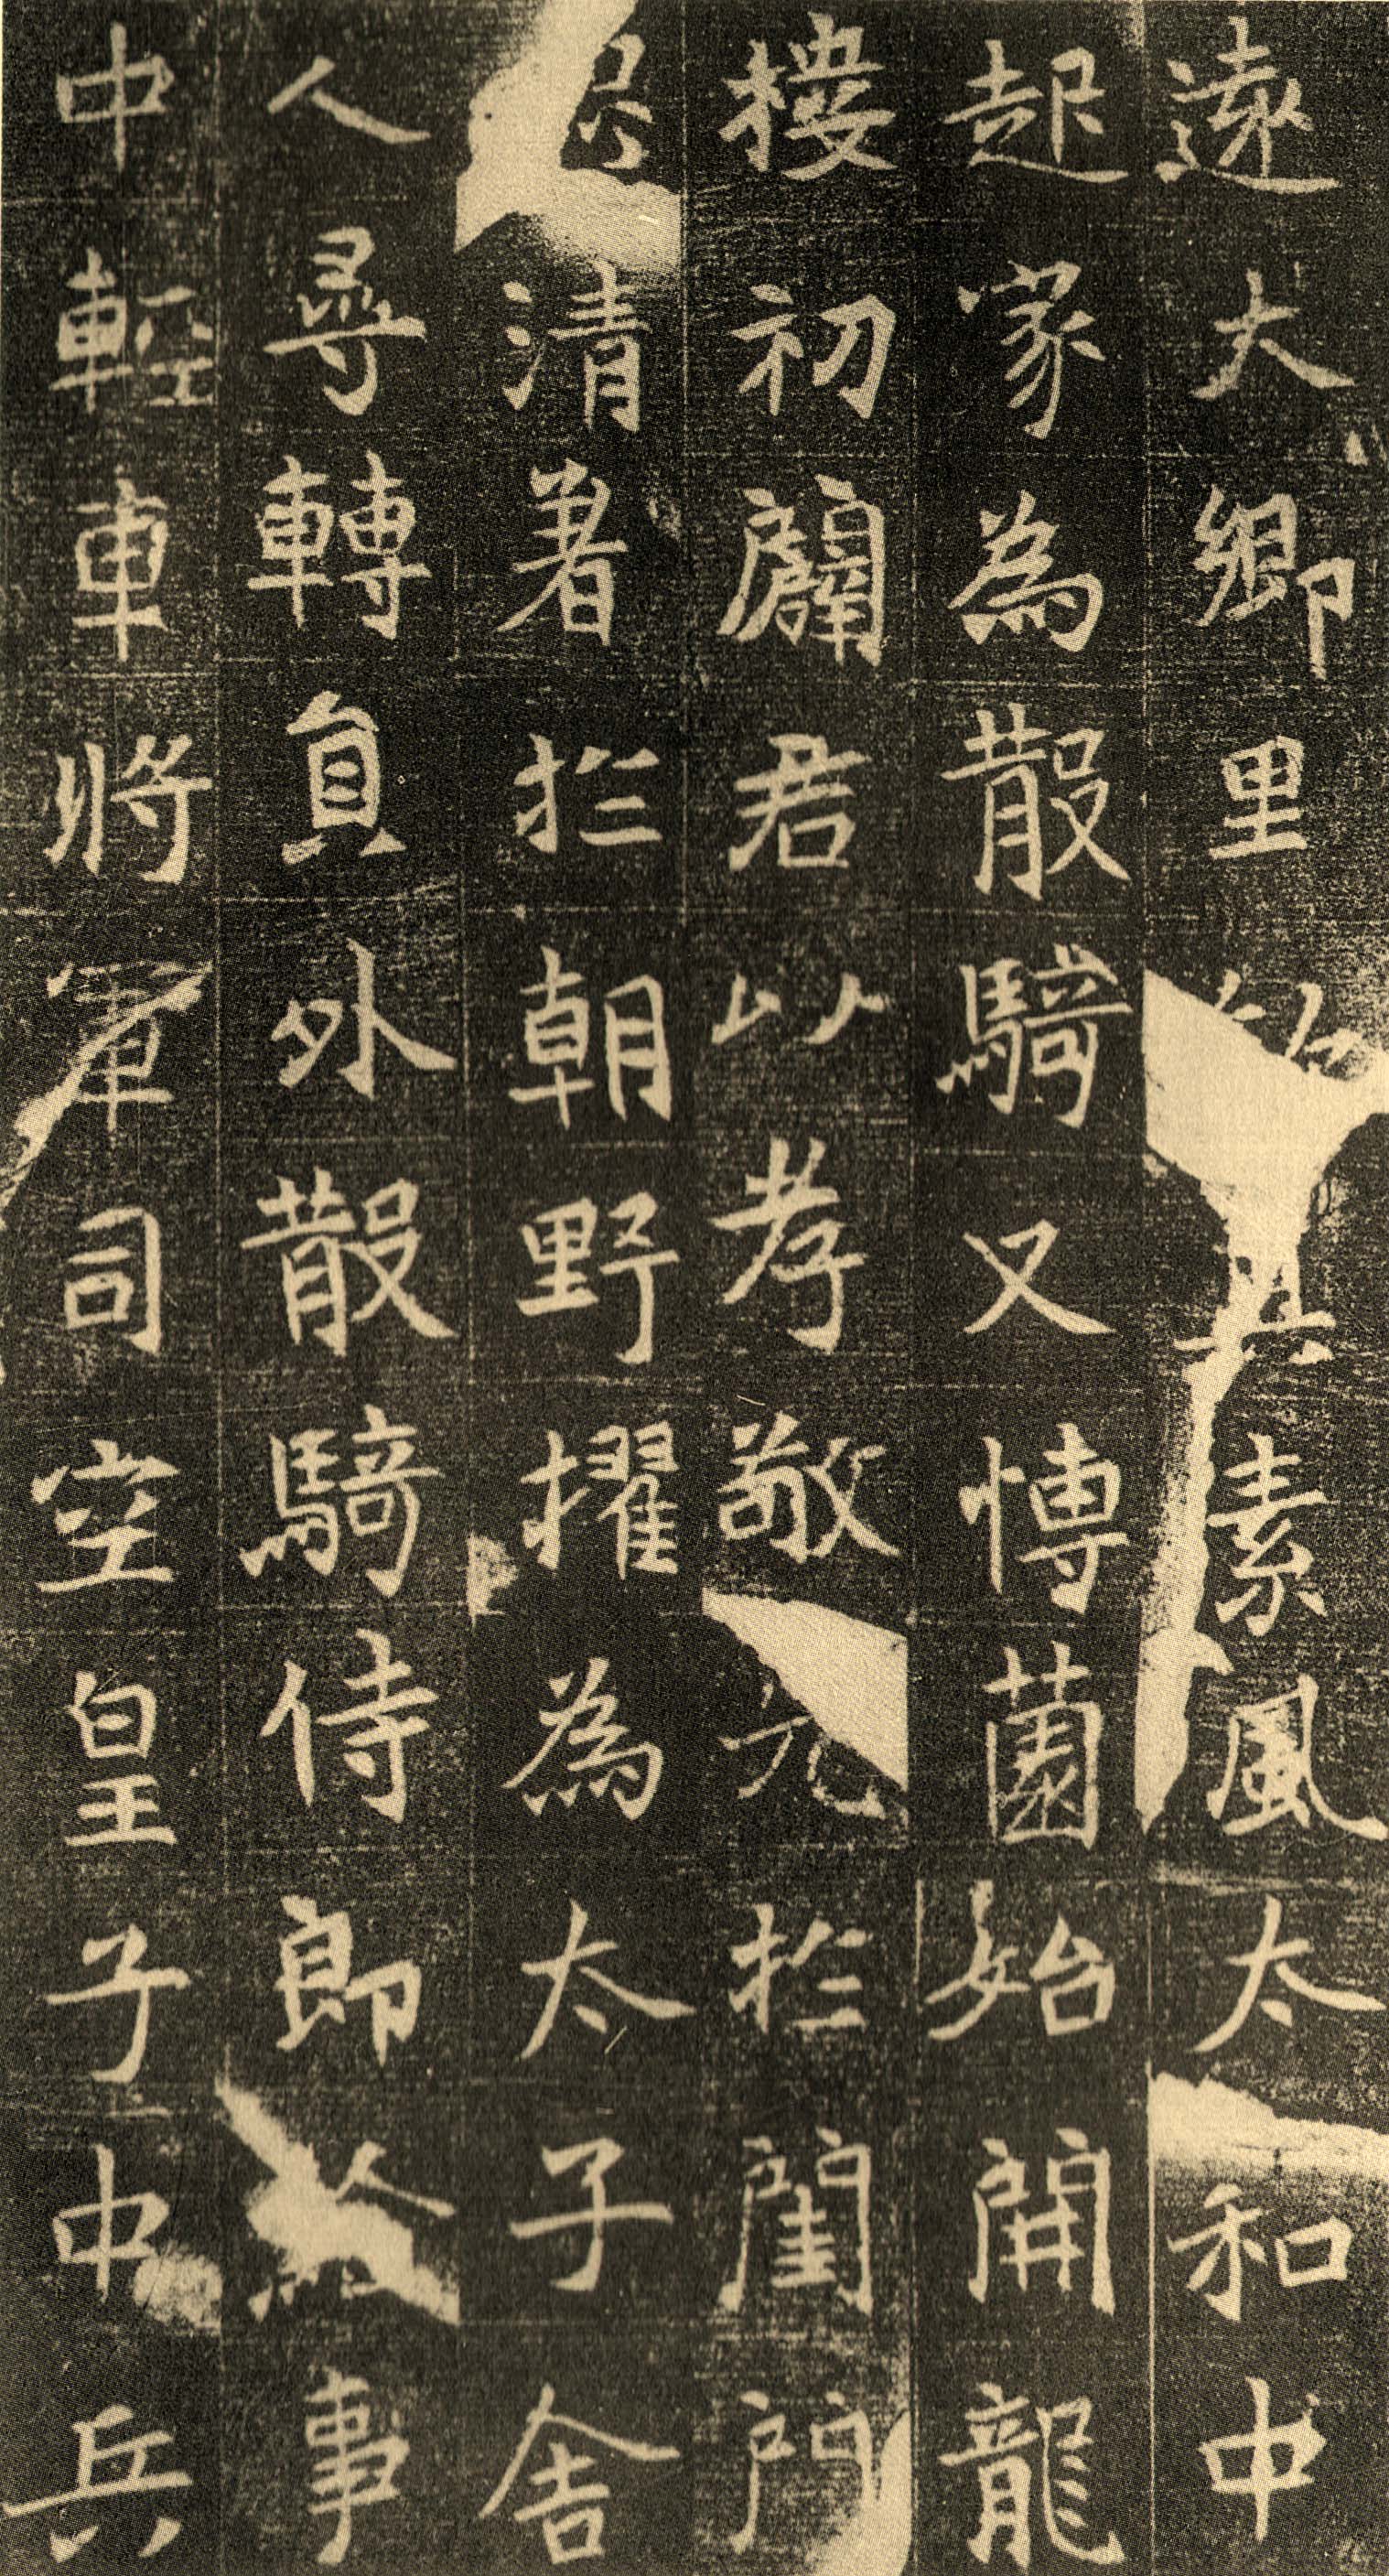 遠大鄉里紹其素風太和中
起家為散騎又博薗始開龍
樓初闢君以孝敬光於閨門
清著於朝野擢為太子舍
人尋轉員外散騎侍郎給事
中輕車將軍司空皇子中兵